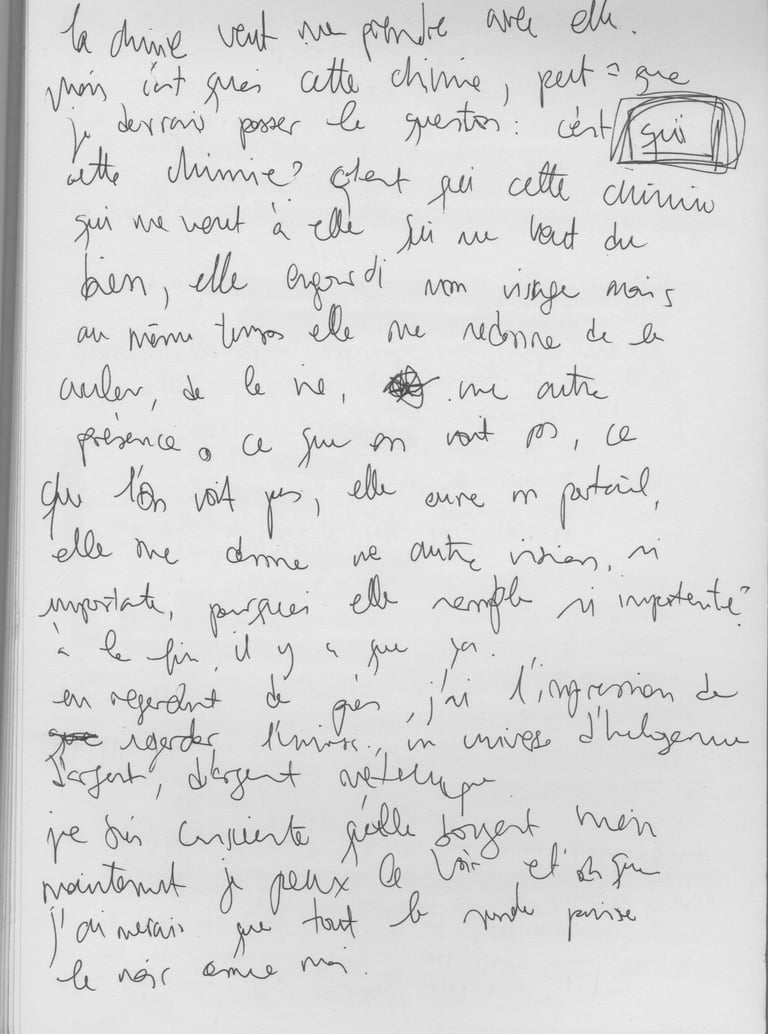 la chimie veut me prendre avec elle.
mais c'est quoi cette chimie, peut-être que
je devrais poser la question : c'est qui
cette chimie? c'est qui cette chimie
qui me veut à elle qui me veut du
bien, elle engourdi mon visage mais
au même temps elle me redonne de la
couleur, de la vie, une autre
présence. ce que on voit pas, ce
que l'on voit pas, elle ouvre un portail,
elle me donne une autre vision, si
importante, pourquoi elle semble si importante?
à la fin, il y a que ça.
en regardant de près, j'ai l'impression de
regarder l'univers, un univers d'halogénure
d'argent, d'argent métallique
je suis consciente qu'elle bougent mais
maintenant je peux le voir et oh que
j'aimerais que tout le monde puisse
le voir comme moi.